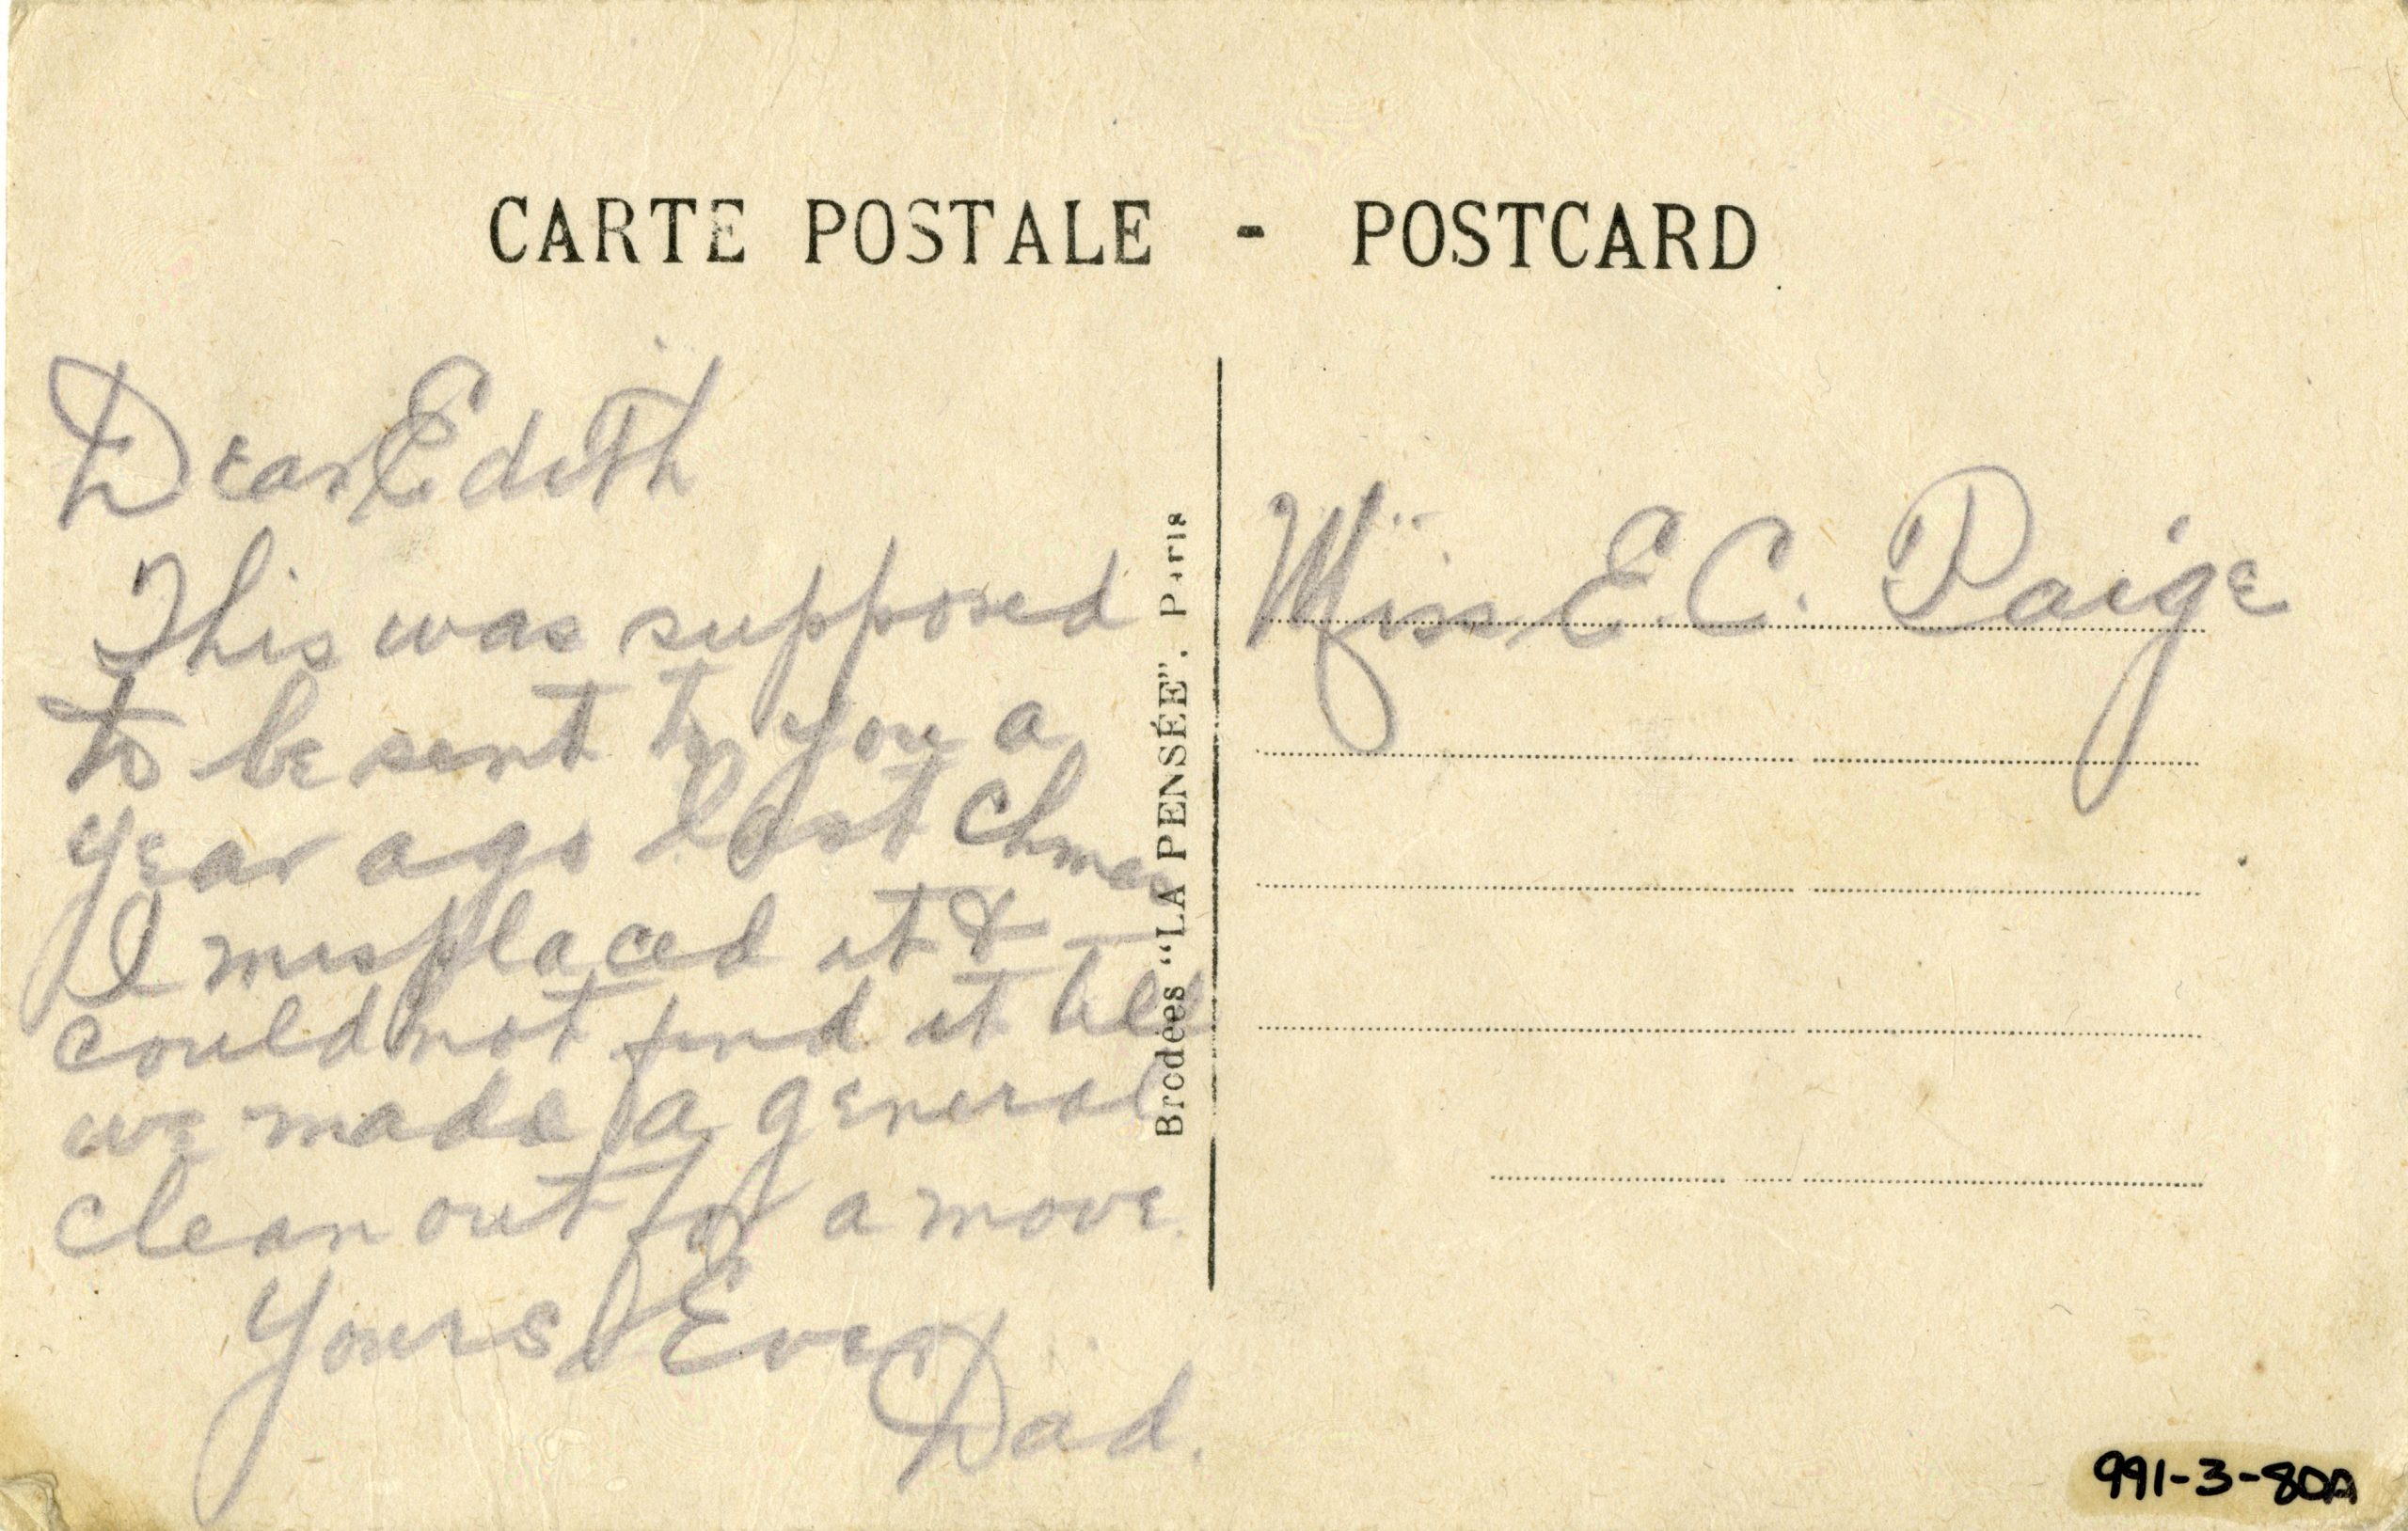 CARTE POSTALE - POSTCARD
Dear Edith
This was supposed
to be sent to you a
year ago last Chmas
I misplaced it &
could not find it till
we made a general
clean out for a move.
Yours Ever
Dad.
Brodées "LA PENSÉE". Paris
Miss E. C. Paige
991-3-80A